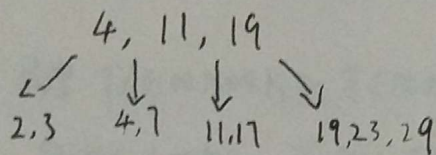 4, 11, 19
2,3 4,7 11,17 19,23,29